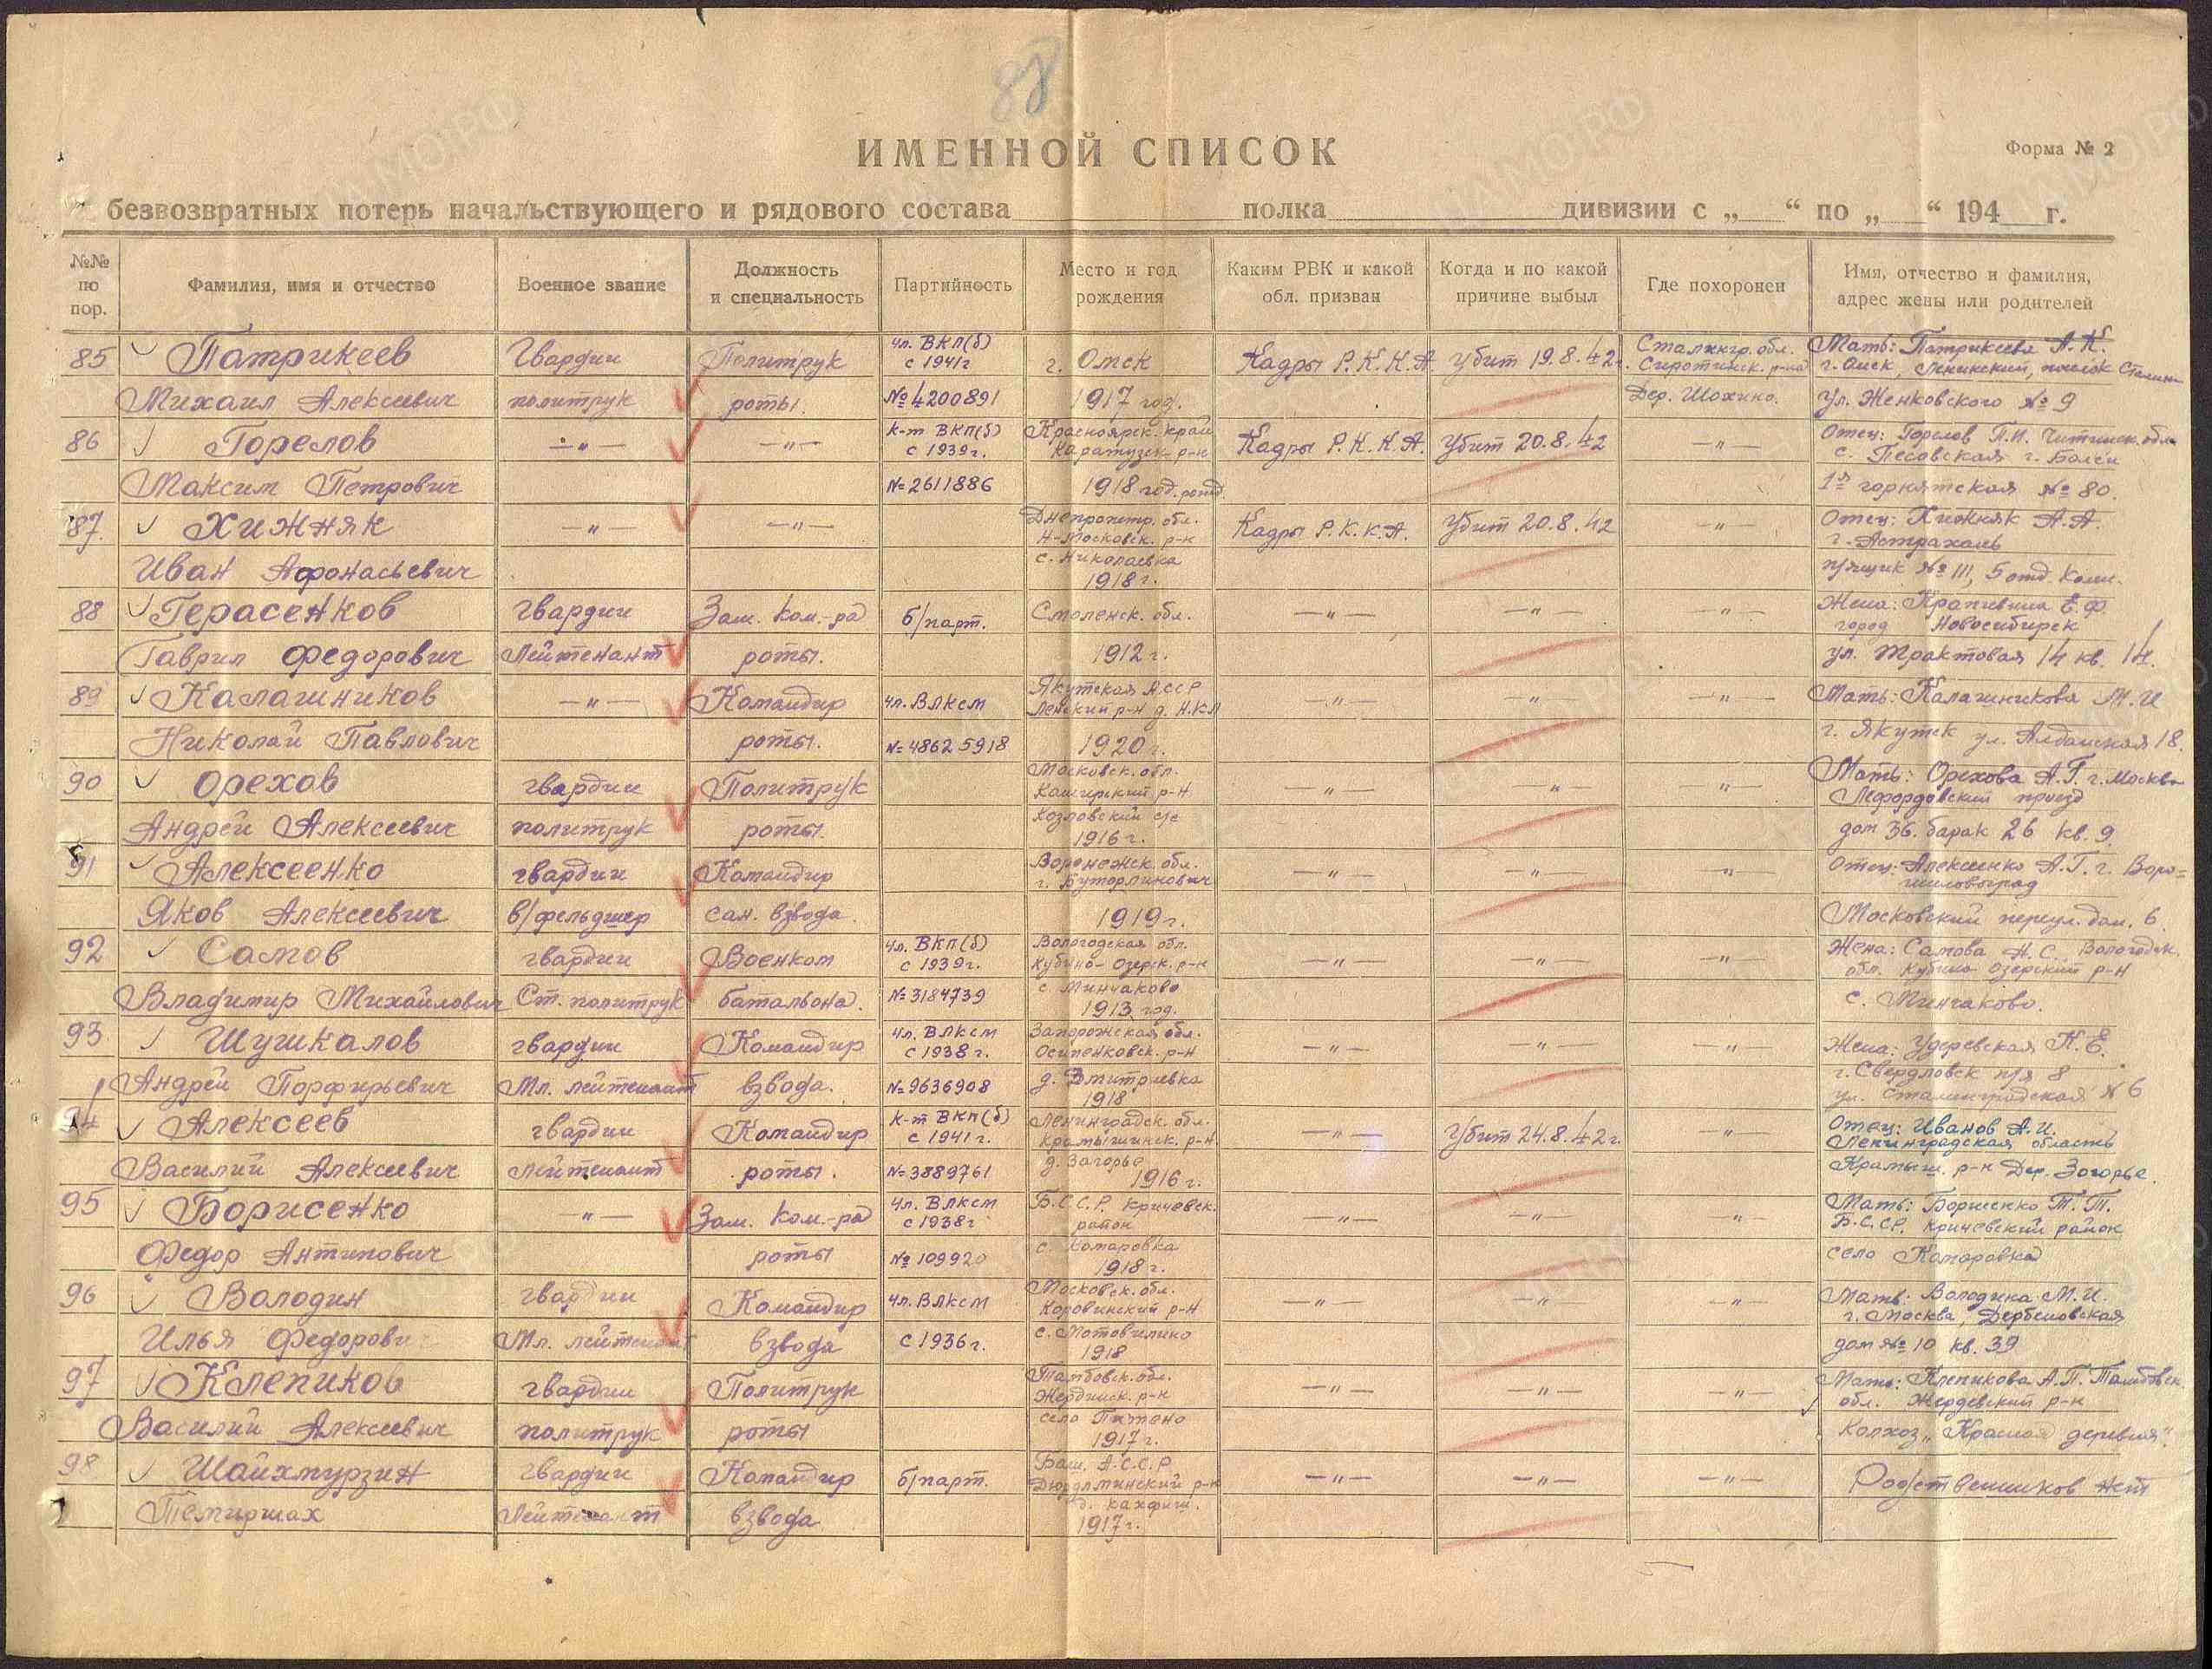 88
ИМЕННОЙ СПИСОК
Форма № 2
безвозвратных потерь начальствующего и рядового состава полка дивизии с „ “ по „ “ 194 г.
№№ по пор.
Фамилия, имя и отчество
Военное звание
Должность и специальность
Партийность
Место и год рождения
Каким РВК и какой обл. призван
Когда и по какой причине выбыл
Где похоронен
Имя, отчество и фамилия, адрес жены или родителей
85 Патрикеев Гвардии Политрук чл. ВКП(б) с 1941г г. Омск Кадры Р.К.К.А убит 19.8.42г. Сталингр. обл. Сиротинск. р-на Мать: Патрикеева А.К. г. Омск, Ленинский, поселок
Михаил Алексеевич политрук роты. №4200891 1917 год. Дер. Шохино. ул. Женковского № 9
86 Горелов —„— —„— к-т ВКП(б) с 1939г. Красноярск. край Каратузск. р-н Кадры Р.К.К.А. Убит 20.8.42 —„— Отец: Горелов П.И. Читинск. обл. с. г. Балей
Максим Петрович №2611886 1918 год. рожд. 1я горнятская № 80.
87. Хижняк —„— —„— Днепропетр. обл. Н-Московск. р-н Кадры Р.К.К.А. Убит 20.8.42 —„— Отец: Хижняк А.А. г. Астрахань
Иван Афонасьевич с. Николаевка 1918г. п/ящик № 111, 5 отд.
88 Герасенков гвардии Зам. ком.-ра б/парт. Смоленск. обл. —„— —„— —„— Жена: Крапивина Е.Ф. город Новосибирск
Гаврил Федорович Лейтенант роты. 1912г. ул. Трактовая 14 кв. 14.
89 Калашников —„— Командир чл. ВЛКСМ Якутская АССР Ленский р-н д. —„— —„— —„— Мать: Калашникова М.И
Николай Павлович роты. №48625918 1920г. г. Якутск ул. Алданская 18.
90 Орехов гвардии Политрук Московск. обл. Каширский р-н —„— —„— —„— Мать: Орехова А.Г. г. Москва Лефордовский проезд
Андрей Алексеевич политрук роты. Козловский с/с 1916г. дом 36. барак 26 кв. 9.
91 Алексеенко гвардии Командир Воронежск. обл. г. Бутурлинович —„— —„— —„— Отец: Алексеенко А.Г. г. Воро=шиловград
Яков Алексеевич в/фельдшер сан. взвода. 1919г. Московский переул. дом. 6.
92 Самов гвардии Военком чл. ВКП(б) с 1939г. Вологодская обл. Кубино-Озерск. р-н —„— —„— —„— Жена: Самова Н.С. Вологодск. обл. Кубино Озерский р-н
Владимир Михайлович Ст. политрук батальона. №3184739 с. Минчаково 1913 год. с. Минчаково.
93 Шушкалов гвардии Командир чл. ВЛКСМ с 1938г. Запорожская обл. Осипенковск. р-н —„— —„— —„— Жена: Удеревская К.Е.
Андрей Порфирьевич Мл. лейтенант взвода. №9636908 д. Дмитриевка 1918 г. Свердловск п/я 8 ул. Сталинградская № 6
94 Алексеев гвардии Командир к-т ВКП(б) с 1941г. Ленинградск. обл. Крамышинск. р-н. —„— Убит 24.8.42г. —„— Отец: Иванов А.И. Ленинградская область
Василий Алексеевич лейтенант роты. №3889761 д. Загорье 1916г. Крамыш. р-н Дер. Зогорье.
95 Борисенко —„— Зам. ком.-ра чл. ВЛКСМ с 1938г Б.С.С.Р. Кричевск. район —„— —„— —„— Мать: Борисенко Т.Т. Б.С.С.Р. Кричевский район
Федор Антипович роты № 109920 с. Комаровка 1918г. село Комаровка
96 Володин гвардии Командир чл. ВЛКСМ Московск. обл. Коровинский р-н —„— —„— —„— Мать: Володина М.И. г. Москва, Дербеновская
Илья Федорович Мл. лейтенант взвода с 1936г. с. Мотовилино 1918 дом № 10 кв. 39
97 Клепиков гвардии Политрук Тамбовск. обл. Жердинск. р-н —„— —„— —„— Мать: Клепикова А.П. Тамбовск. обл. Жердевский р-н
Василий Алексеевич политрук роты село 1917г. Колхоз „Красная деревня".
98 Шайхмурзин гвардии Командир б/парт. Баш. А.С.С.Р Дюрдлминский р-н —„— —„— —„— Родственников нет
Темиршах Лейтенант взвода 1917г.